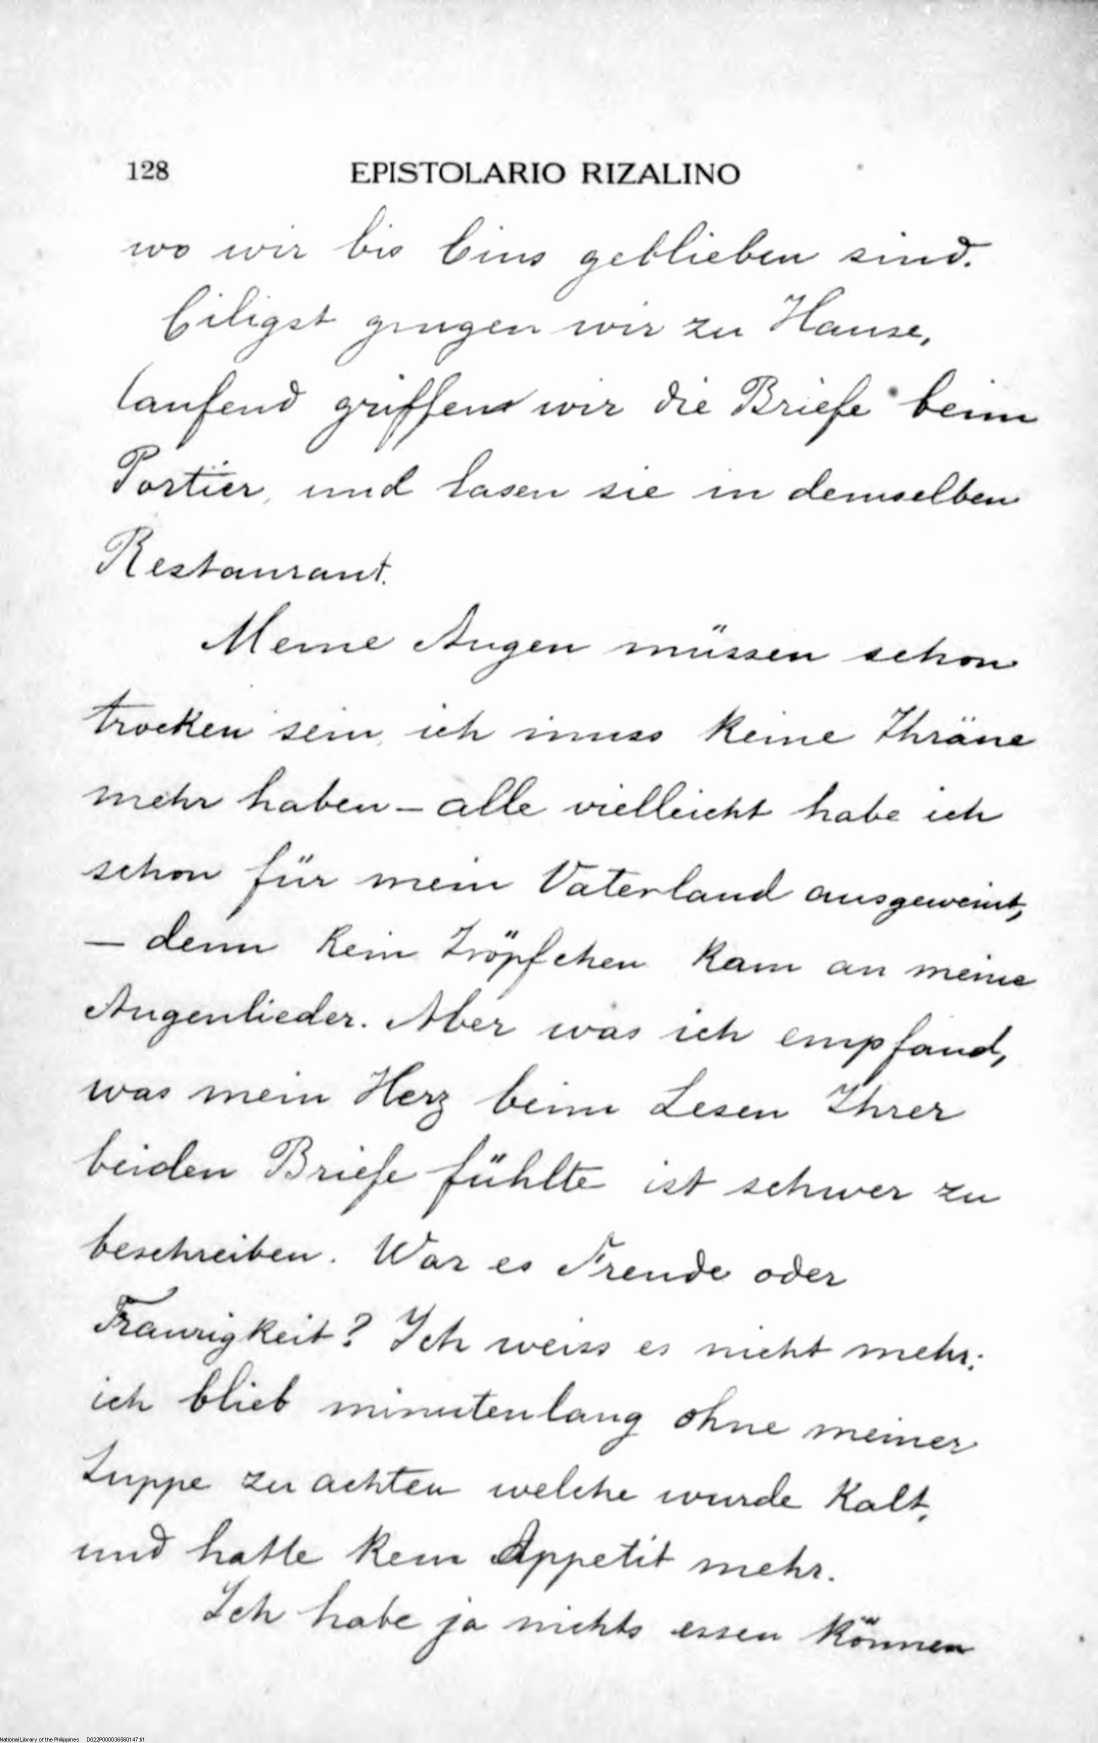 128 EPISTOLARIO RIZALINO
wo wir bis Eins geblieben sind.
Eiligst gingen wir zu Hause,
laufend griffen wir die Briefe beim
Portïer, und lasen sie in demselben
Restaurant.
Meine Augen müssen schon
trocken sein, ich muss keine Thräne
mehr haben – alle vielleicht habe ich
schon für mein Vaterland ausgeweint,
– denn kein Tröpfchen kam an meine
Augenlieder. Aber was ich empfand,
was mein Herz beim Lesen Ihrer
beiden Briefe fühlte ist schwer zu
beschreiben. War es Freude oder
Traurigkeit? Ich weiss es nicht mehr;
ich blieb minutenlang ohne meiner
Suppe zu achten welche wurde kalt,
und hatte kein Appetit mehr.
Ich habe ja nichts essen können
National Library of the Philippines D022P000036560147.tif